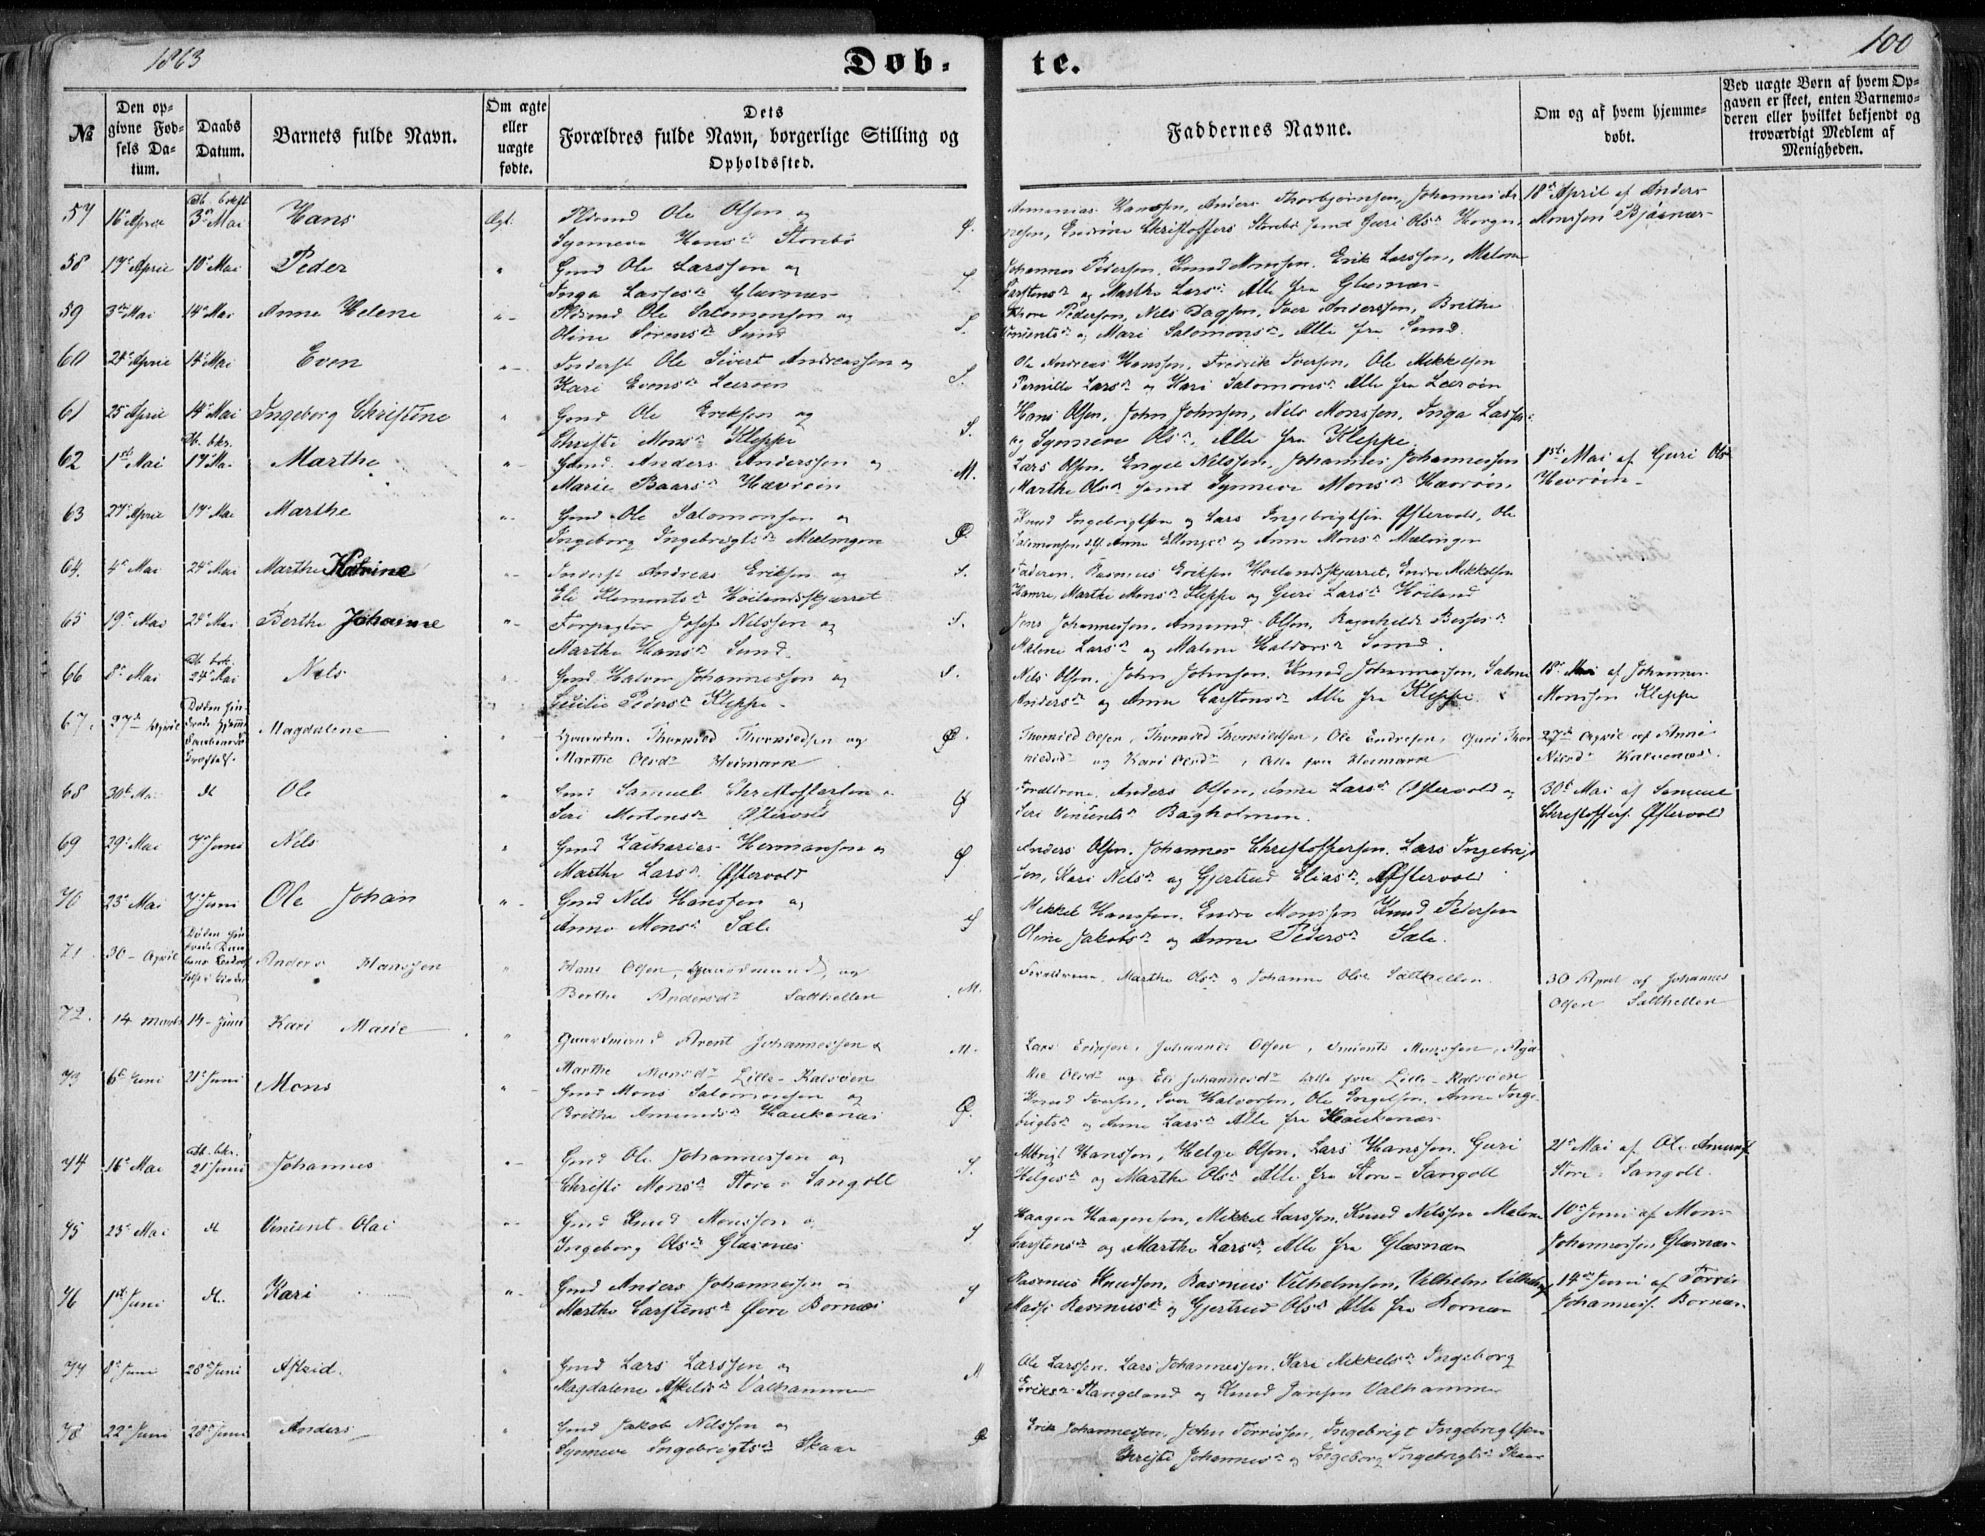 1863
Døb-
te.
100
№
Den op-
givne Fød-
sels Da-
tum.
Daabs
Datum.
Barnets fulde Navn.
Om ægte
eller
uægte
fødte.
Dets
Forældres fulde Navn, borgerlige Stilling og
Opholdssted.
Faddernes Navne.
Om og af hvem hjemme-
døbt.
Ved uægte Børn af hvem Op-
gaven er skeet, enten Barnemo-
deren eller hvilket bekjendt og
troværdigt Medlem af
Menigheden.
57 16de April 3die Mai Hans Ægt. Ole Olsen og
Synneve Hansdr Storebø Ø.
Ananias Hansen, Anders Thorbjørnsen, Johannes
Endrine Christoffers Storebø samt Guri Olsdr Horgen
18de April af Anders
Monsen Bjørnær
58 17de April 10de Mai Peder " Gmd Ole Larssen og
Inga Lassesdr Glæsnæs S.
Johannes Pedersen, Knud Monsen, Erik Larssen, Malene
Carstensdr og Marthe Larsdr Alle fra Glæsnæs
59 3die Mai 14de Mai Anne Helene " Ole Salomonsen og
Oline Sørensdr Sund S.
Pedersen, Nels Dagsen, Iver Anderssen, Brithe
Vincentsdr og Mari Salomonsdr, Alle fra Sund.
60 24de April 14de Mai Even " Inderst Ole Sivert Andreassen og
Kari Evensdr Lerøen S.
Ole Andreas Hanssen, Fredrik Iversen, Ole Mikkelsen
Pernille Larsdr og Kari Salomonsdr Alle fra Lerøen
61 25de April 14de Mai Ingeborg Christine " Gmd Ole Eriksen og
Christi Monsdr Kleppe S.
Hans Olsen, John Johnsen, Nels Monssen, Inga Lasses-
og Synneve Olsdr, Alle fra Kleppe
62 1ste Mai 17 Ma. Marthe " Gmd Anders Anderssen og
Marie Baarsdr Hævrøen M.
Lars Olsen, Engel Nilssen, Johannes Johannessen
Marthe Olsdr samt Synneve Monsdr Hævrøen
1ste Mai af Guri Olsdr
Hevrøen
63 27de April 17de Mai Marthe " Gmd Ole Salomonsen og
Ingeborg Ingebrigtsdr Mælingen Ø.
Knud Ingebrigtsen og Lars Ingebrigtsen Østervold, Ole
Salomonsen Anne Ellingsdr og Anne Monsdr Mælingen
64. 4de Mai 24de Mai Marthe Katrine " Inderst Andreas Eriksen og
Eli Klementsdr Høilandsskjæret S.
Faderen, Rasmus Eriksen Høilandsskjæret, Endre Mikkelsen
Hamre, Marthe Monsdr Kleppe og Guri Larsdr Høiland
65 19de Mai 24de Mai Berthe Johanne " Forpagter Josef Nilssen og
Marthe Hansdr Sund. S.
Jens Johannessen, Amund Olsen, Ragnhilde
Malene Larsdr og Malene Haldorsdr Sund.
66 8de Mai 24de Mai Nels " Gmd Halvor Johannessen og
Cecilie Pedersdr Kleppe S.
Nels Olsen, John Johnsen, Knud Johannessen, Salme
Andersdr og Anna Carstensdr Alle fra Kleppe
18de Mai af Johannes
Monssen Kleppe
67. 27de April Døden hin-
drede Hjemme-
Magdalene " Gaardm. Thormod Thormodsen og
Marthe Olsdr Heimark Ø.
Thormod Olsen, Thormod Thormodsen, Ole Endresen, Guri Thor-
modsdr og Kari Olsdr, Alle fra Heimark
27de April af Anne
Nilsdr Kalvenæs.
68 30te Mai d Ole " Gmd Samuel Christoffersen og
Seri Mortensdr Østervold Ø
Forældrene, Anders Olsen, Anne Larsdr Østervold og
Seri Vincentsdr Bagholmen.
30te Mai af Samuel
Christoffers. Østervold
69 29de Mai 7de Juni Nels " Gmd Zacharias Hermansen og
Marthe Larsdr Østervold Ø.
Anders Olsen, Johannes Christoffersen, Lars Ingebrigt-
sen, Kari Nelsdr og Gjertrud Eliasdr, Østervold
70 23de Mai 7de Juni Ole Johan " Gmd Nels Hanssen og
Anne Monsdr Sæle S
Mikkel Hanssen, Endre Monssen Knud Pedersen
Oline Jakobsdr og Anne Pedersdr Sæle.
71. 30 April Døden hin-
drede
Anders Hanssen " Hans Olsen, Gaardmand, og
Berthe Andersdr Salthellen M.
Forældrene, Marthe Olsdr og Johanne Olsdr Salthellen.
30 April af Johannes
Olsen Salthellen
72. 14 Marts 14 Juni Kari Marie " Gaardmand Arent Johannessen &
Marthe Monsdr Lille-Kalsøen M.
Lars Erikssen, Johannes Olsen, Vincents Monssen,
Olsdr og Eli Johannesdr Alle fra Lille-Kalsøen
73 6te Juni 21de Juni Mons " Gmd Mons Salomonsen og
Brithe Amundsdr Haukenæs Ø.
Knud Iversen, Iver Halvorsen, Ole Engelsen, Anne Inge-
brigtsdr og Anne Larsdr Alle fra Haukenæs
74 16de Mai 21de Juni Johannes " Gmd Ole Johannessen og
Christi Monsdr Store-Sangolt S.
Albrigt Hanssen, Helge Olsen, Lars Hanssen, Guri
Helgesdr og Marthe Olsdr Alle fra Store-Sangolt
21de Mai af Ole Amunds.
Store-Sangolt
75 23de Mai d Vincent Olai " Gmd Knud Monssen og
Ingeborg Olsdr Glæsnes S
Haagen Haagensen, Mikkel Larssen, Knud Nilssen Malene
Carstensdr og Marthe Larsdr, Alle fra Glæsnæs
10de Juni af Mons
Johannessen Glæsnæs
76 1ste Juni d. Kari " Gmd Anders Johannessen og
Marthe Carstensdr Øvre Bornæs S
Rasmus Knudsen, Rasmus Vilhelmsen, Vilhelm Vilhelms.
Madsi Rasmusdr og Gjertrud Olsdr Alle fra Bornæs
14de Juni af Torris
Johanness. Bornæs.
77 8de Juni 28de Juni Askid. " Gmd Lars Larssen og
Magdalene Askildsdr Valhammer M
Ole Larssen, Lars Johannessen, Kari Mikkelsdr Ingeborg
Eriksdr Stangeland og Knud Jansen Valhammer
78 22de Juni 28de Juni Anders " Gmd Jakob Nilssen og
Synneve Ingebrigtsdr Skaar Ø
Erik Johannessen, John Torrissen, Ingebrigt Ingebrigtsen
Christi Johannesdr og Ingeborg Ingebrigtsdr Skaar